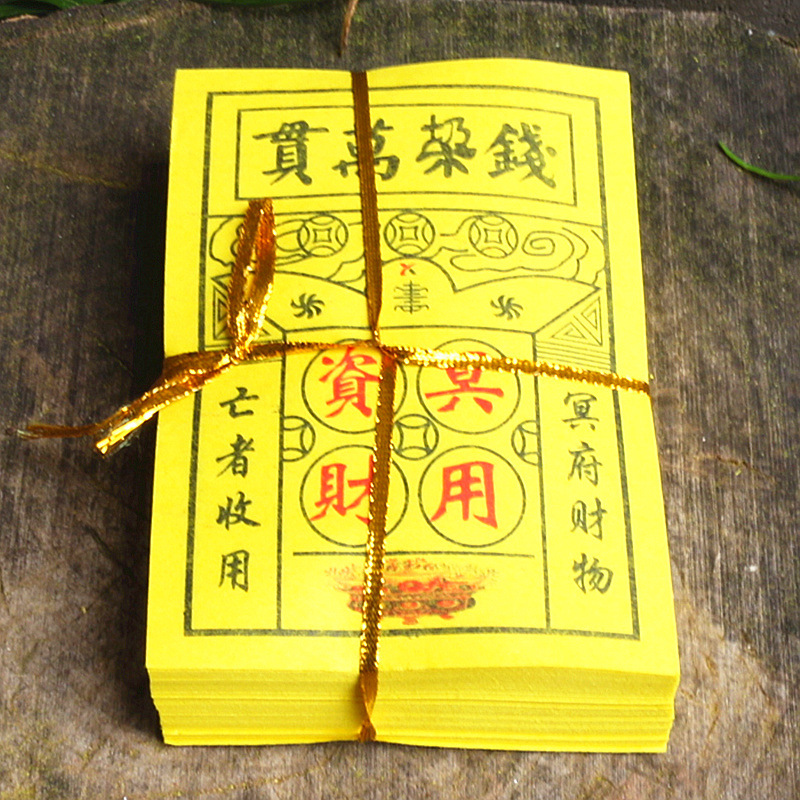 錢萬貫
冥府财物
冥用
資財
亡者收用